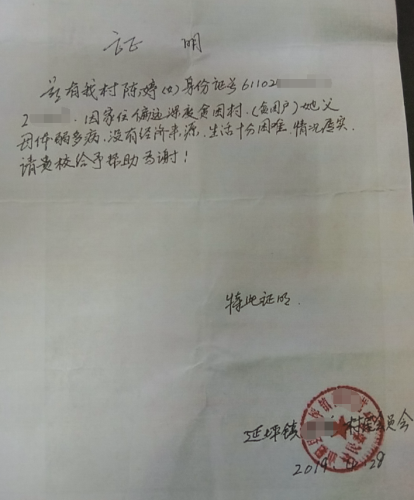 证 明
兹有我村陈婷(女)身份证号61102
2 因家住偏远深度贫困村.(贫困户)她父
母体弱多病.没有经济来源.生活十分困难.情况属实.
请贵校给予帮助为谢!
特此证明.
延坪镇 村委会
2019. 28